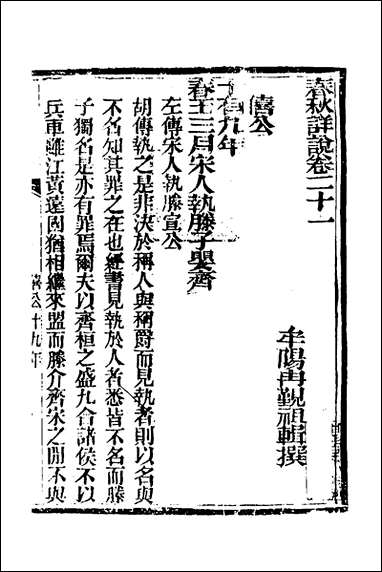 春秋詳說卷二十一
牟陽冉覲祖輯撰
僖公
十有九年
春王三月宋人執滕子嬰齊
左傳宋人執滕宣公
胡傳執之是非決於稱人與稱爵而見執者則以名與
不名知其罪之在也經書見執於人者悉皆不名而滕
子獨名是亦有罪焉爾夫以齊桓之盛九合諸侯不以
兵車雖江黃遠國猶相繼來盟而滕介齊宋之間不與
僖公十九年